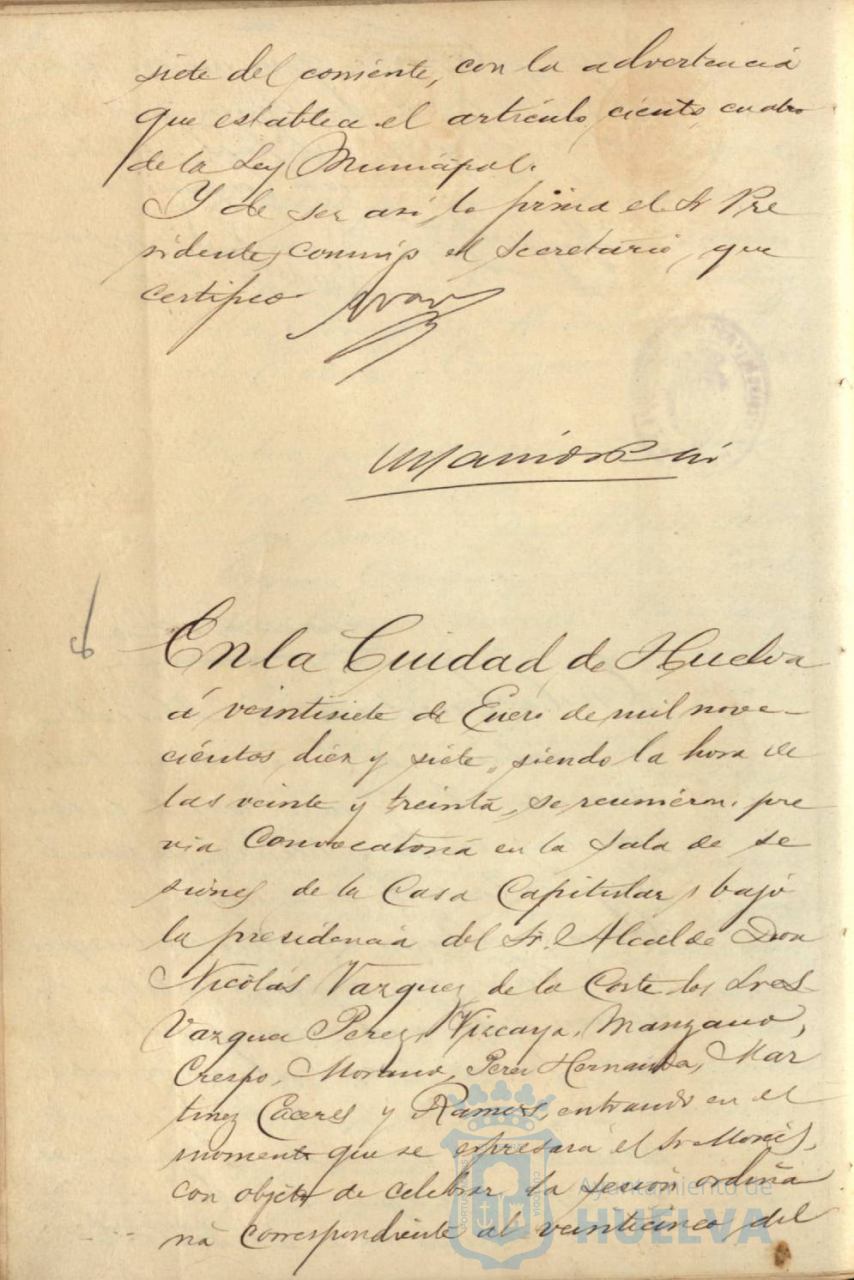 siete del corriente, con la advertencia
que establece el artículo ciento cuatro
de la Ley Municipal.
Y de ser así, lo firma el Sr Pre
sidente, conmigo el Secretario, que
certifico
6
En la Ciudad de Huelva
á veintisiete de Enero de mil nove-
cientos diez y siete, siendo la hora de
las veinte y treinta, se reunieron, pre
via convocatoria en la Sala de se
siones de la Casa Capitular, bajo
la presidencia del Sr. Alcalde Don
Nicolás Vazquez de la Corte los Sres
Vazquez Perez, Vizcaya, Manzano,
Crespo, Moreno, Perez Hernandez, Mar
tinez Cáceres y Ramos, entrando en el
momento que se expresará el Sr
con objeto de celebrar la sesión ordina
ria correspondiente al veinticinco del
Ayuntamiento de
HUELVA